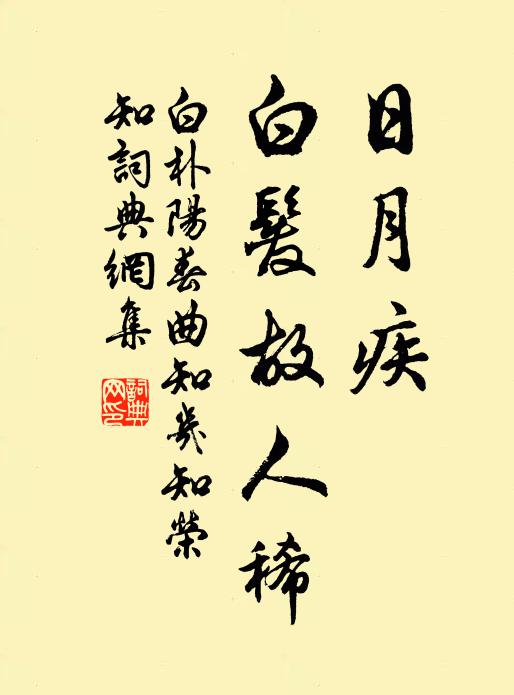 日月疾
白髮故人稀
白朴陽春曲知幾知榮
知詞典網集
詞典网印